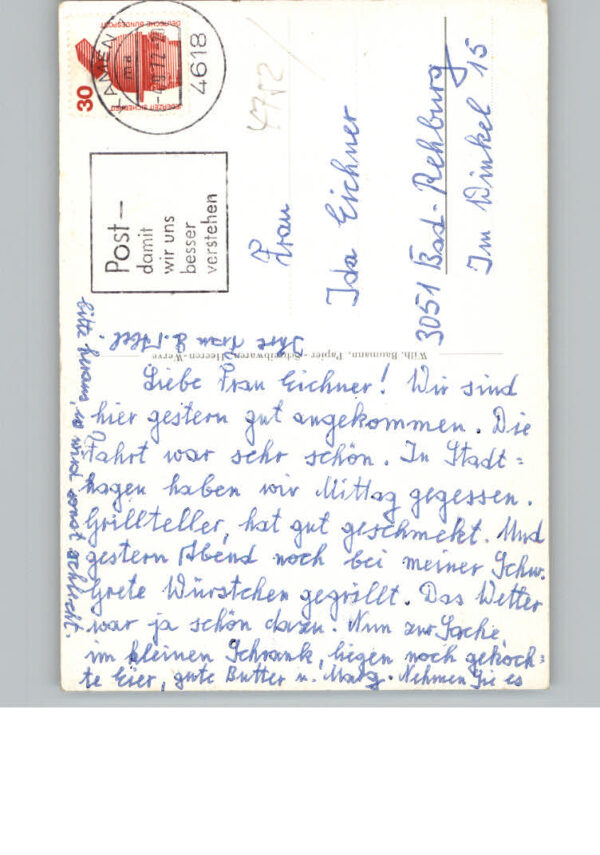 DEUTSCHE BUNDESPOST
30
KAMEN
ma
4618
Post –
damit
wir uns
besser
verstehen
4752
Frau
Ida Eichner
3051 Bad-Rehburg
Im Winkel 15
Wilh. Baumann, Papier-Schreibwaren, Heeren-Werve
Liebe Frau Eichner! Wir sind
hier gestern gut angekommen. Die
Fahrt war sehr schön. In Stadt=
hagen haben wir Mittag gegessen.
Grillteller, hat gut geschmekt. Und
gestern Abend noch bei meiner Schw.
Grete Würstchen gegrillt. Das Wetter
war ja schön dazu. Nun zur Sache,
im kleinen Schrank, liegen noch gekoch=
te Eier, gute Butter u. Marg. Nehmen Sie es
bitte heraus, es wird sonst schlecht.
Ihre Frau